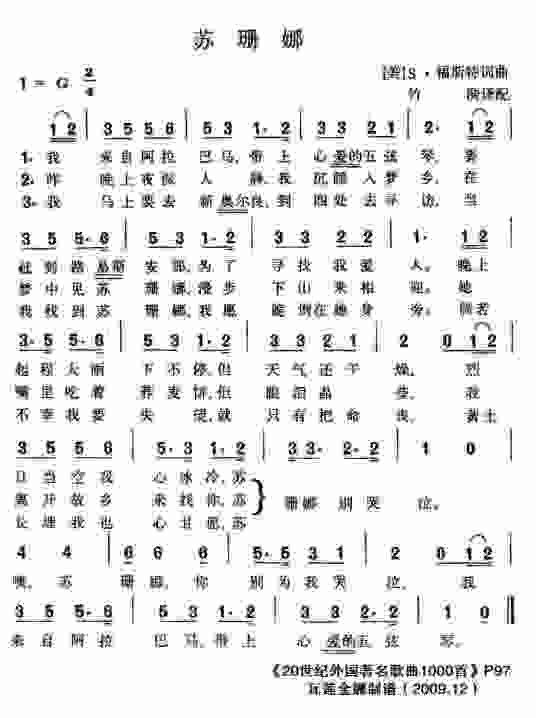 苏珊娜
1 = G 2/4
[美]S·福斯特词曲
竹 漪译配
1 2 | 3 5 5 6 | 5 3· 1·2 | 3 3 2 1 | 2· 1 2 |
1·我 来自阿拉 巴马,带上 心爱的五弦 琴,要
2·昨 晚上夜深 人 静,我 沉睡入梦乡,在
3·我 马上要去 新奥尔良,到 四处去寻 访,当
3 5 5·6 | 5 3· 1·2 | 3 3 2 2 | 1· 1 2 |
赶到路易斯 安那,为了 寻找我爱 人。晚上
梦中见苏 珊娜,漫步 下山来相 迎。她
我找到苏 珊娜,我愿 旁。
3·5 5·6 | 5 3 1·2 | 3 3 2·1 | 2 0 1 2 |
起程大雨 下不停,但 天气还干 燥,烈
嘴里吃着 荞麦饼,但 眼泪
不幸我要 失 望,就 只有把命 丧,黄土
3 5 5 6 | 5· 3 1·2 | 3 3· 2·2 | 1 0 |
日当空我 心冰冷,苏
离开故乡 来找你,苏
长埋我也 心甘愿,苏
珊娜 别哭 泣。
4 4 | 6 6 6 | 5·5 3 1 | 2 0 1 2 |
噢,苏 珊娜,你 别为我哭 泣,我
3 5 5·6 | 5·3 1·2 | 3 3 2 2 | 1 0 ‖
来自阿拉 巴马,带上 心爱的五弦 琴。
《20世纪外国著名歌曲1000首》P97
制谱(2009.12)